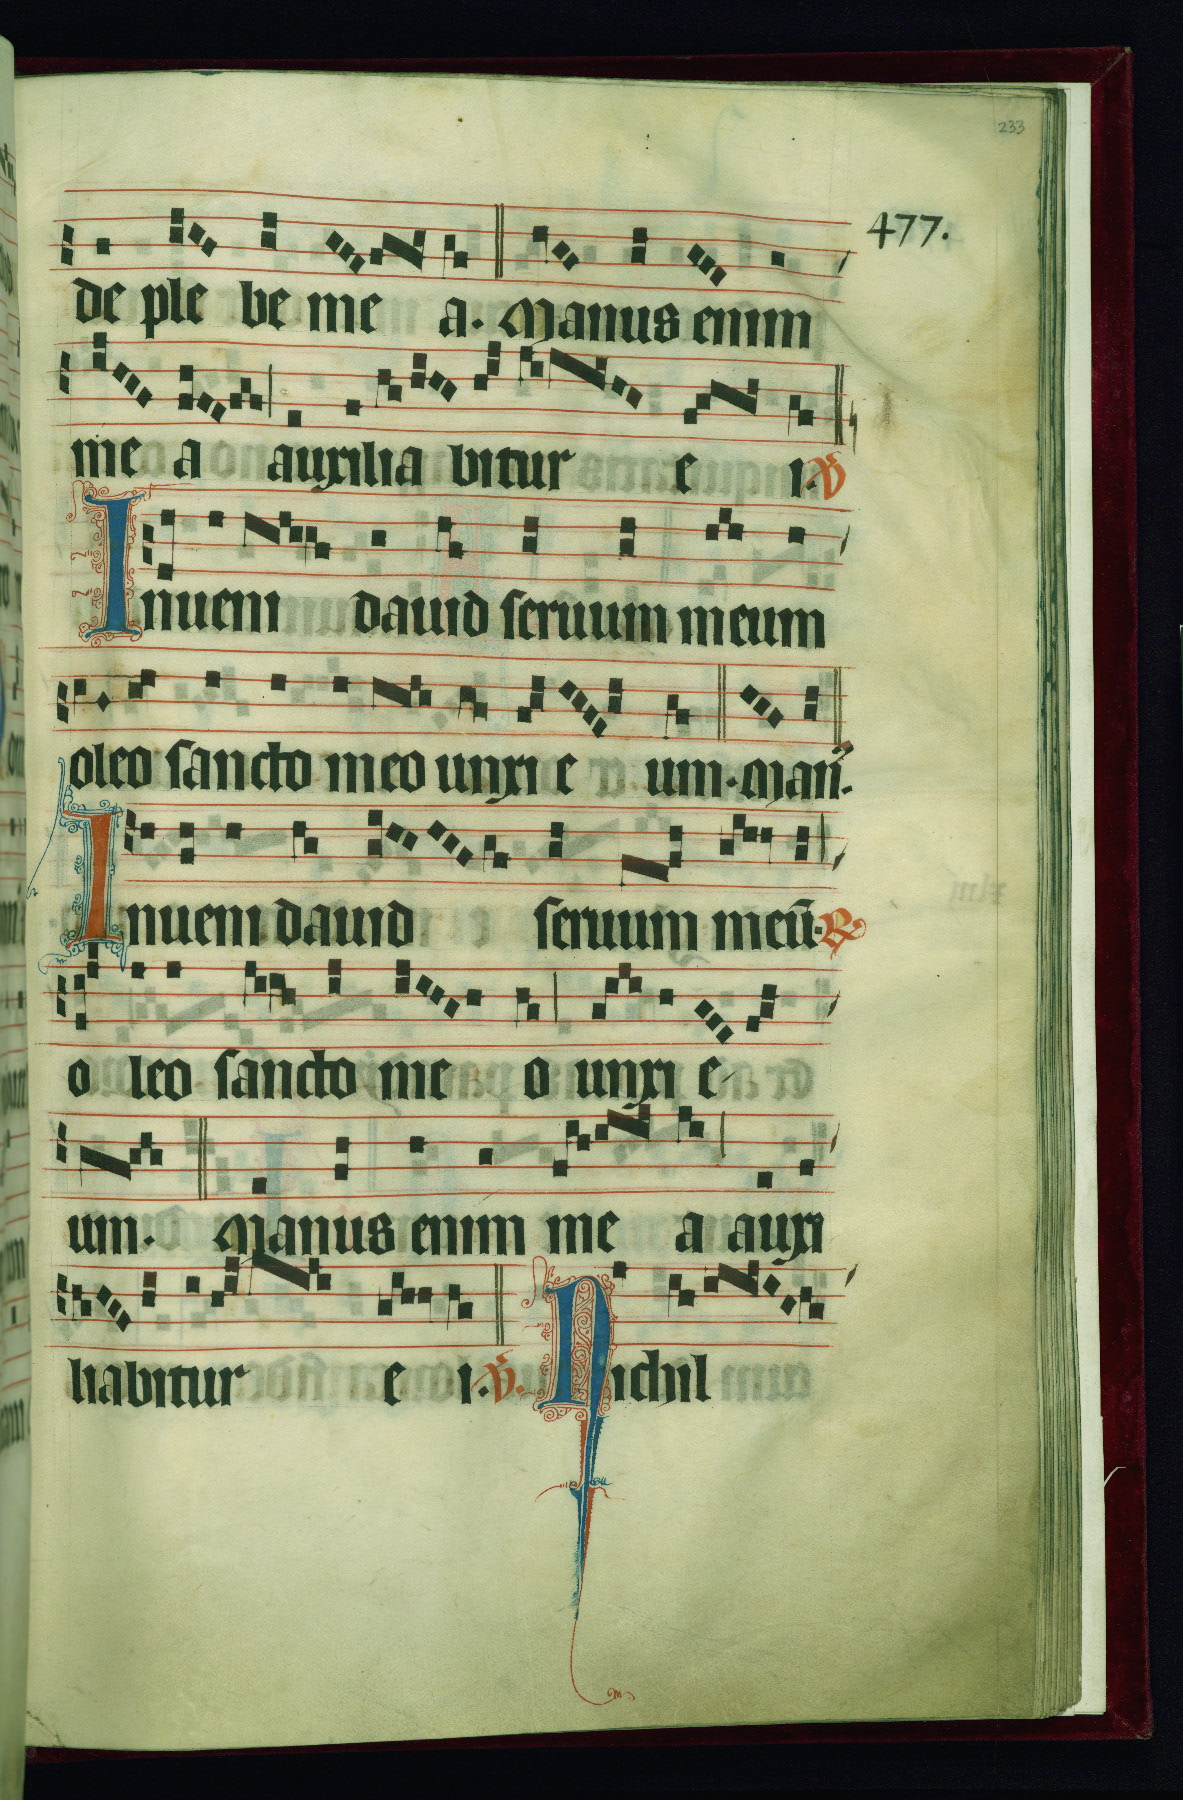 233
477.
de ple be me a. Manus enim
me a auxilia bitur e i. V
Inueni dauid seruum meum
oleo sancto meo unxi e um. Man̄.
Inueni dauid seruum meū. R
o leo sancto me o unxi e
um. Manus enim me a auxi
liabitur e i. V. Nichil